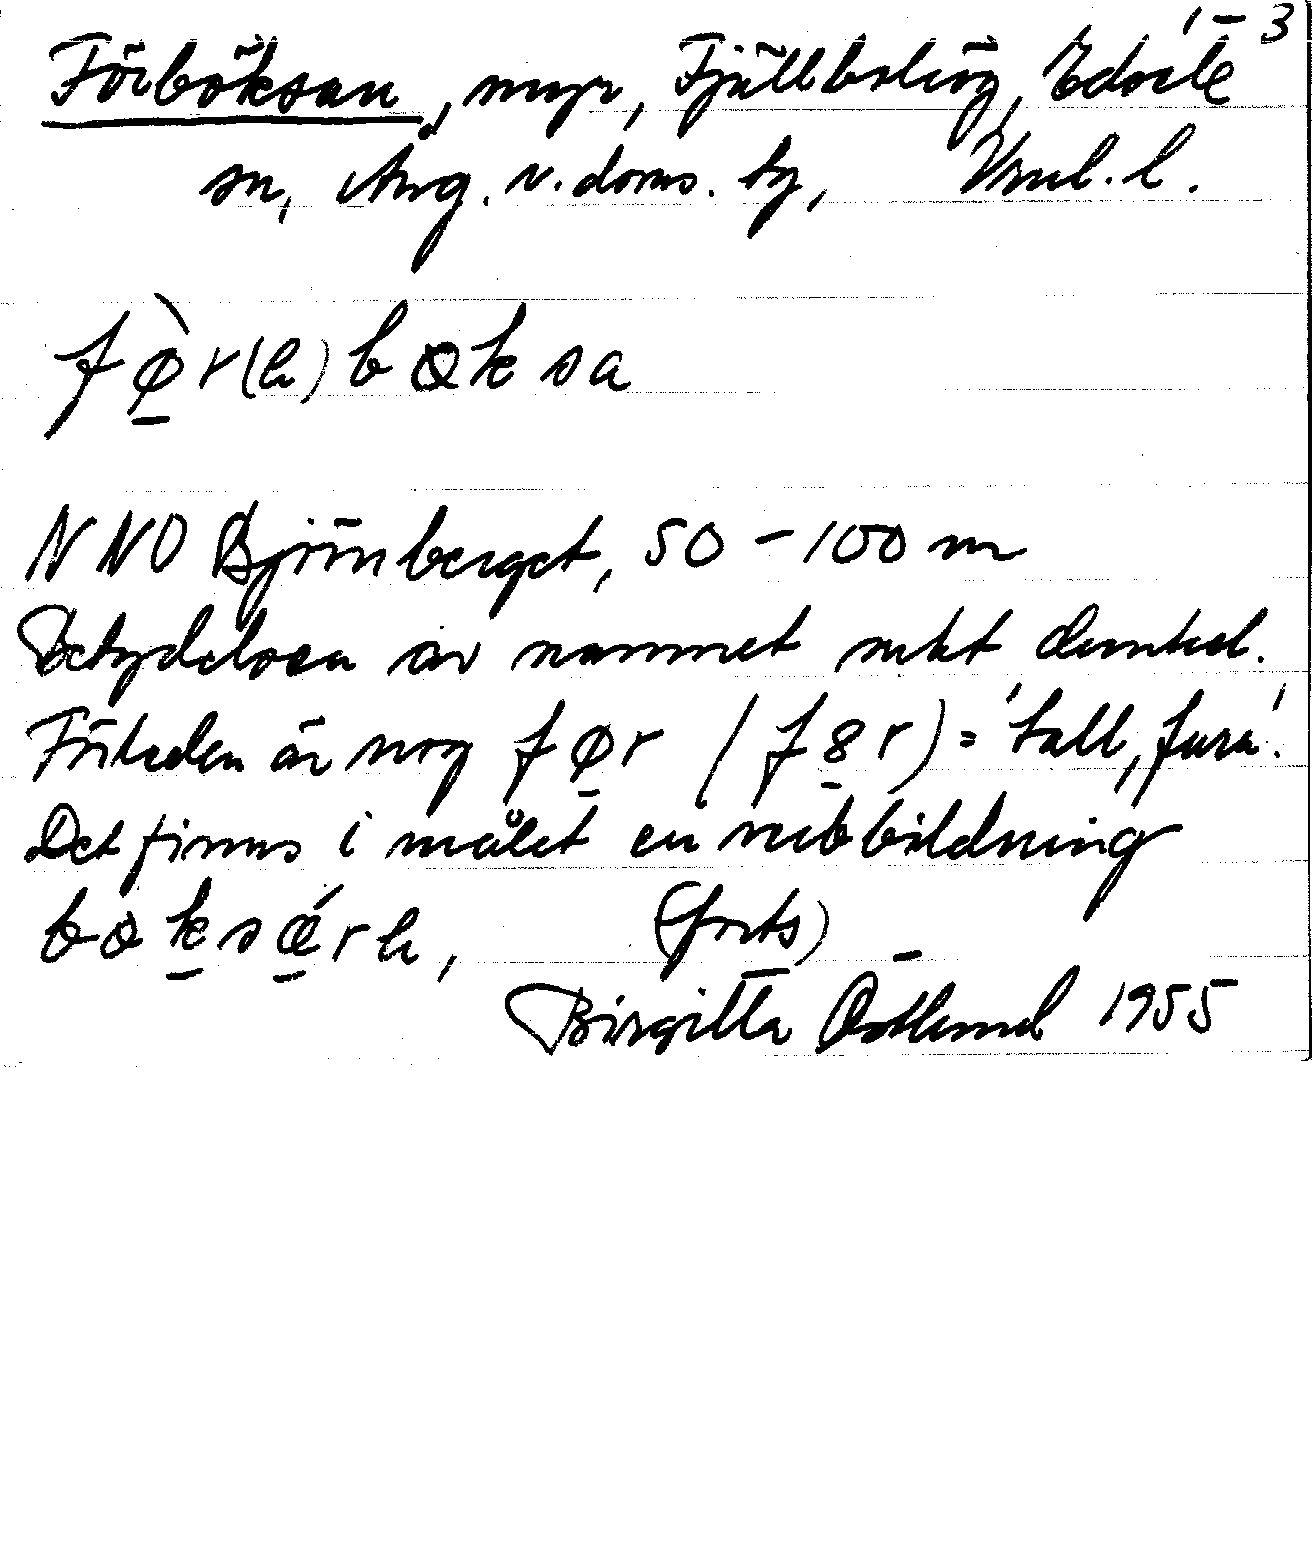 1-3
Förböksan, myr, Fjällbohög, Edsele
sn, Ång. v. doms. tg, Vnl. l.
fø̀r(h)bøksa
NNO Björnberget, 50-100 m
Betydelsen av namnet rätt dunkel.
Förleden är nog før (f8r) = 'tall, fura'.
Det finns i målet en verbbildning
bøksǿrh, (forts)
Birgitta Östlund 1955